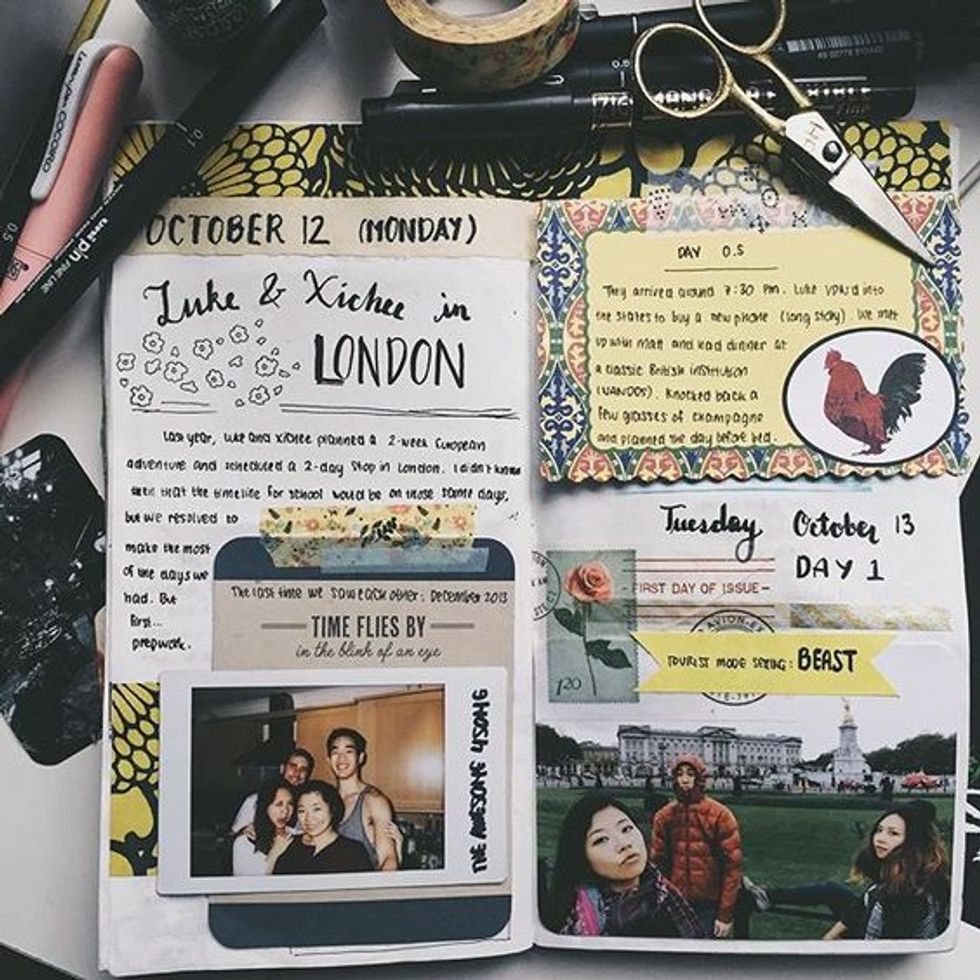 OCTOBER 12 (MONDAY)
Luke & Xichee in
LONDON
Last year, Luke and Xichee planned a 2-week European
adventure and scheduled a 2-day stop in London. I didn't know
then that the timeline for school would be on those same days,
but we resolved to
make the most
of the days we
had. But
first...
prepwork.
The last time we saw each other: December 2013
TIME FLIES BY
in the blink of an eye
THE AWESOME
DAY 0.5
They arrived around 7:30 pm. Luke
the states to buy a new phone (long story). We met
up with Matt and had dinner at
a classic British institution
(NANDOS). Knocked back a
few glasses of champagne
and planned the day before bed.
Tuesday October 13
DAY 1
FIRST DAY OF ISSUE
120
TOURIST MODE SETTING: BEAST
uni pin FINE LINE
0.1
0.5
COCORO